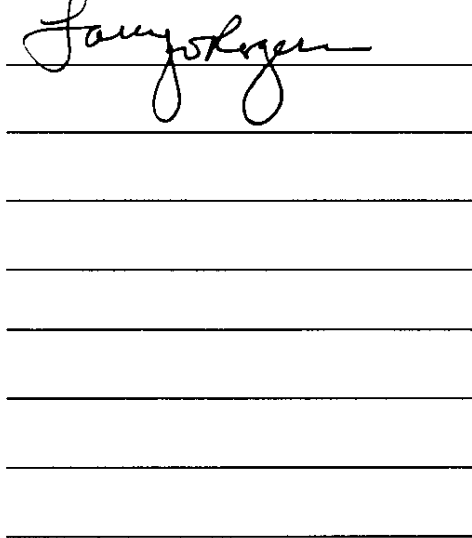 Larry D Rogers